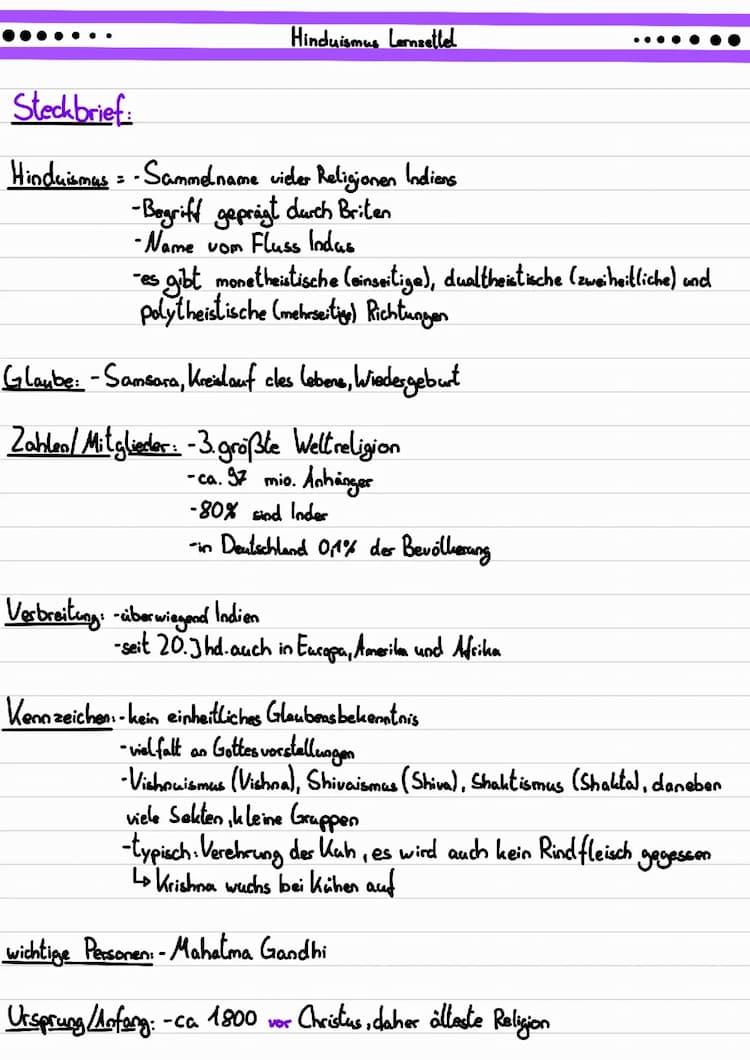 Hinduismus Lernzettel
Steckbrief:
Hinduismus = - Sammelname vieler Religionen Indiens
-Begriff geprägt durch Briten
-Name vom Fluss Indus
-es gibt monetheistische (einseitige), dualtheistische (zweiheitliche) und
polytheistische (mehrseitige) Richtungen
Glaube: - Samsara, Kreislauf des Lebens, Wiedergeburt
Zahlen/Mitglieder: -3.größte Weltreligion
-ca. 97 mio. Anhänger
-80% sind Inder
-in Deutschland 0,1% der Bevölkerung
Verbreitung: -überwiegend Indien
-seit 20.Jhd. auch in Europa, Amerika und Afrika
Kennzeichen: -kein einheitliches Glaubensbekenntnis
-vielfalt an Gottesvorstellungen
-Vishnuismus (Vishna), Shivaismus (Shiva), Shaktismus (Shakta), daneben
viele Sekten, kleine Gruppen
-typisch: Verehrung der Kuh, es wird auch kein Rindfleisch gegessen
↳ Krishna wuchs bei Kühen auf
wichtige Personen: - Mahatma Gandhi
Ursprung/Anfang: -ca 1800 vor Christus, daher älteste Religion